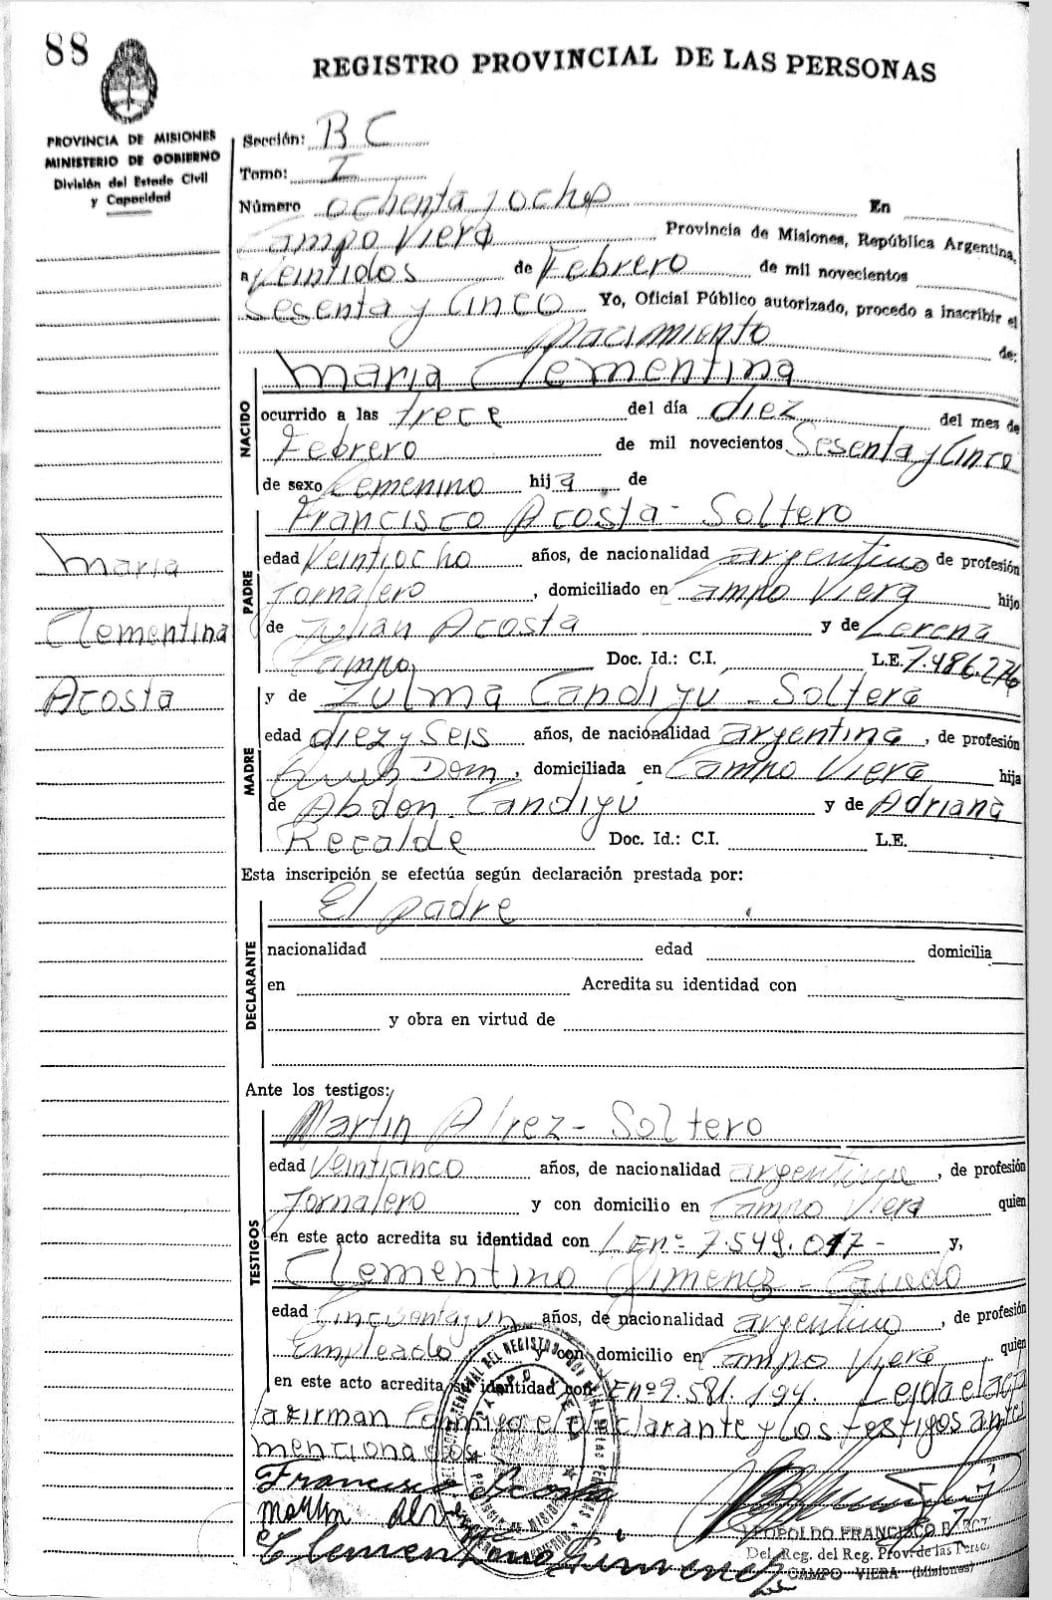 88
REGISTRO PROVINCIAL DE LAS PERSONAS
PROVINCIA DE MISIONES
MINISTERIO DE GOBIERNO
División del Estado Civil
y Capacidad
Sección: B C
Tomo: I
Número ochenta y ocho En
Campo Viera Provincia de Misiones, República Argentina,
a Veintidos de Febrero de mil novecientos
Sesenta y Cinco Yo, Oficial Público autorizado, procedo a inscribir el
Nacimiento de:
NACIDO
Maria Clementina
ocurrido a las trece del día diez del mes de
Febrero de mil novecientos Sesenta y Cinco
de sexo Femenino hija de
PADRE
Francisco Acosta - Soltero
edad Veintiocho años, de nacionalidad argentino de profesión
Jornalero, domiciliado en Campo Viera hijo
de Julian Acosta y de Lorena
Campo Doc. Id.: C.I. L.E. 7.486.276
Maria
Clementina
Acosta
y de Zulma Candiyú - Soltera
MADRE
edad diez y seis años, de nacionalidad argentina, de profesión
Dom, domiciliada en Campo Viera hija
de Abdon Candiyú y de Adriana
Recalde Doc. Id.: C.I. L.E.
Esta inscripción se efectúa según declaración prestada por:
DECLARANTE
El padre
nacionalidad edad domicilia
en Acredita su identidad con
y obra en virtud de
Ante los testigos:
TESTIGOS
Martin Alrez - Soltero
edad Veinticinco años, de nacionalidad argentino, de profesión
Jornalero y con domicilio en Campo Viera quien
en este acto acredita su identidad con L E nº 7.549.017 - y,
Clementino Gimenez - Casado
edad Cincuenta y un años, de nacionalidad argentino, de profesión
Empleado y con domicilio en Campo Viera quien
en este acto acredita su identidad con E nº 2.581.194. Leida el acta
la firman conmigo el declarante y los testigos antes
mencionados
Francisco Acosta
Martin Alrez
Clementino Gimenez
LEOPOLDO FRANCISCO
Del. Reg. del Reg. Prov. de las Perso.
CAMPO VIERA (Misiones)